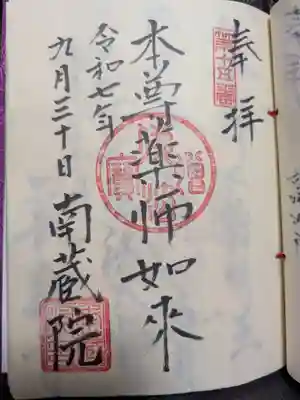 奉拝
本尊薬師如来
令和七年
九月三十日
南蔵院